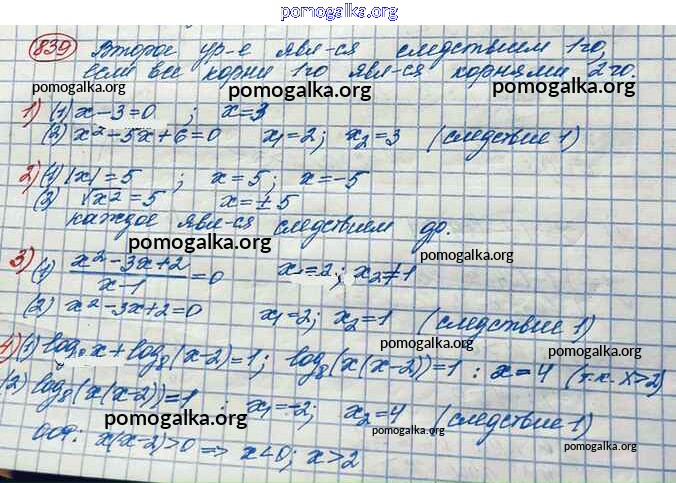 pomogalka.org
839 Второе ур-е явл-ся следствием 1го,
если все корни 1го явл-ся корнями 2го.
pomogalka.org pomogalka.org
1) (1) x-3=0 ; x=3
(2) x²-5x+6=0 x₁=2; x₂=3 (следствие 1)
pomogalka.org
2) (1) |x|=5 ; x=5; x=-5
(2) √x²=5 x=±5
каждое явл-ся следствием др.
pomogalka.org
pomogalka.org
3) (1) (x²-3x+2)/(x-1)=0 x₁=2; x₂≠1
(2) x²-3x+2=0 x₁=2; x₂=1 (следствие 1)
pomogalka.org pomogalka.org
4) (1) log₈x+log₈(x-2)=1; log₈(x(x-2))=1: x=4 (т.к. x>2)
(2) log₈(x(x-2))=1 ; x₁=-2; x₂=4 (следствие 1)
pomogalka.org pomogalka.org pomogalka.org
ООФ: x(x-2)>0 => x<0; x>2